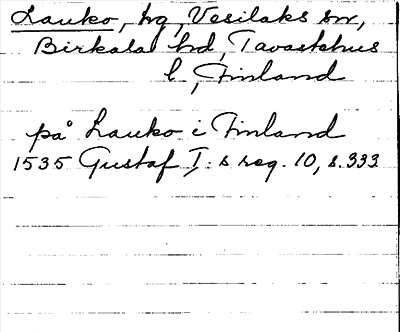 Lauko, hg, Vesilaks sn,
Birkala hd, Tavastehus
l, Finland
på Lauko i Finland
1535 Gustaf I:s reg. 10, s. 333